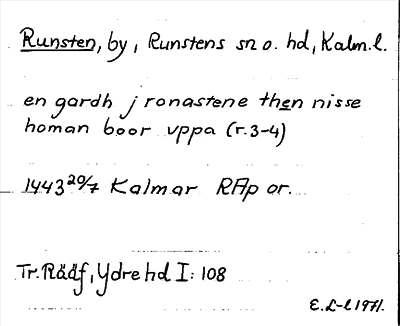 Runsten, by, Runstens sn o. hd, Kalm. l.
en gardh j ronastene then nisse
homan boor vppa (r.3-4)
1443 20/7 Kalmar RAp or.
Tr. Rääf, Ydre hd I: 108
E. L-l 1971.